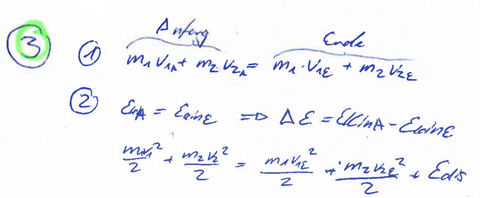 Anfang Ende
③ ① m₁v₁A + m₂v₂A = m₁·v₁E + m₂v₂E
② EkinA = EkinE ⇒ ΔE = EKinA - EkinE
m₁v₁²/2 + m₂v₂²/2 = m₁v₁E²/2 + m₂v₂E²/2 + Edis